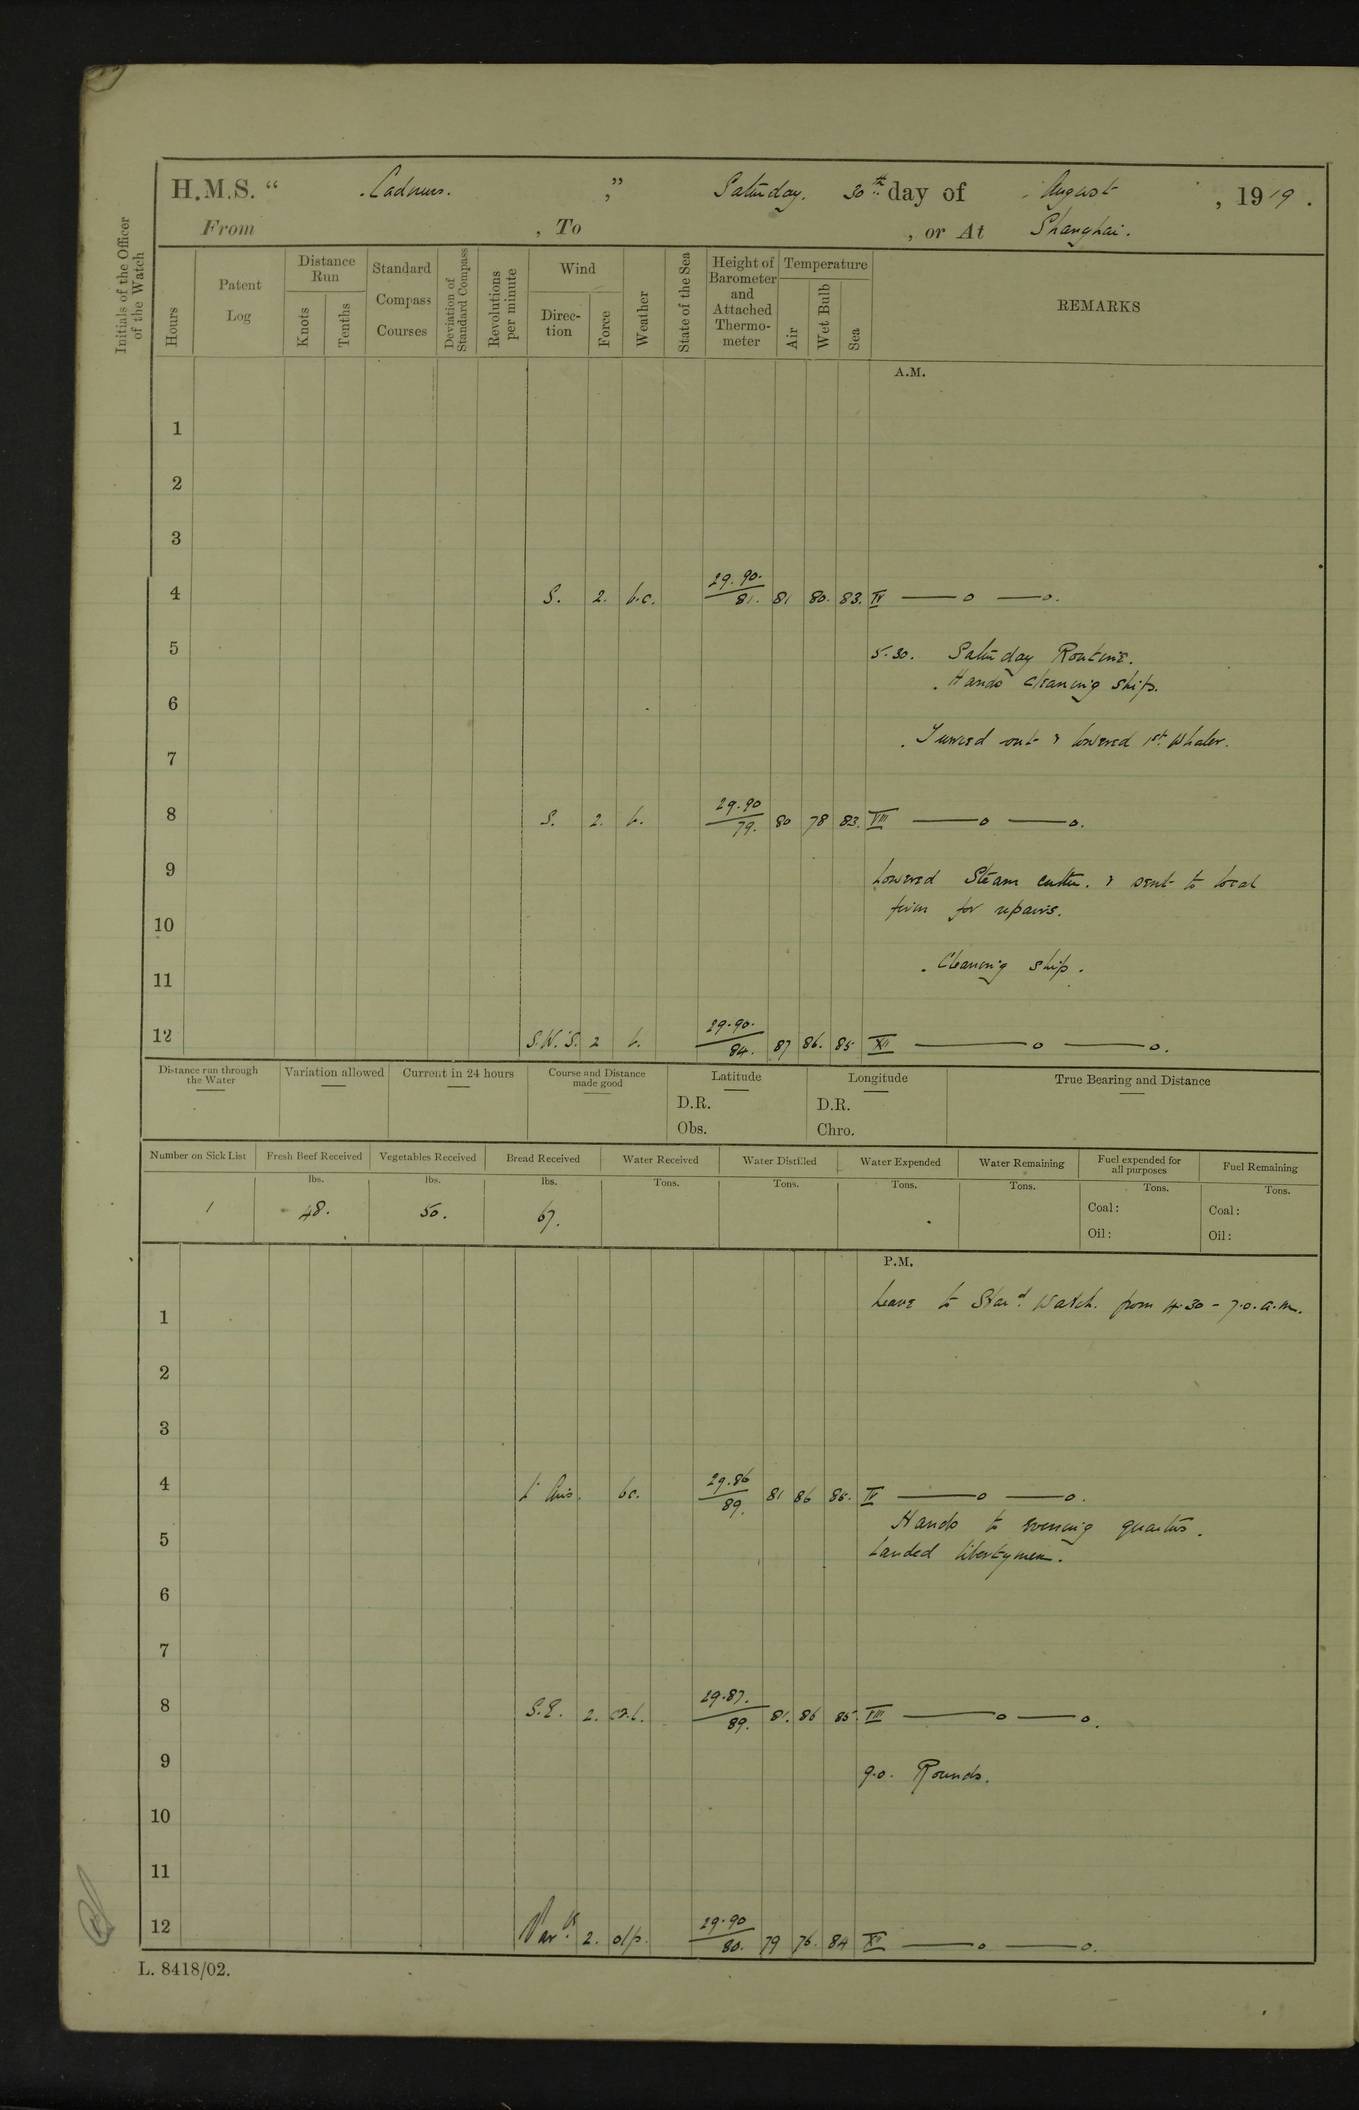 H.M.S. " Cadmus. " Saturday. 30th day of August, 1919.
From , To , or At Shanghai.
Initials of the Officer of the Watch
Hours
Patent Log
Distance Run
Knots
Tenths
Standard Compass Courses
Deviation of Standard Compass
Revolutions per minute
Wind
Direc-tion
Force
Weather
State of the Sea
Height of Barometer and Attached Thermo-meter
Temperature
Air
Wet Bulb
Sea
REMARKS
A.M.
1
2
3
4 S. 2. b.c. 29.90. 81. 81 80. 83. IV —o —o.
5 5.30. Saturday Routine.
. Hands cleaning ship.
6
. Turned out & lowered 1st Whaler.
7
8 S. 2. b. 29.90 79. 80 78 83. VIII —o —o.
9 Lowered Steam cutter. & sent to local
firm for repairs.
10
. Cleaning ship.
11
12 S.W.'S. 2 b. 29.90. 84. 87 86. 85 XII —o —o.
Distance run through the Water
Variation allowed
Current in 24 hours
Course and Distance made good
Latitude
D.R.
Obs.
Longitude
D.R.
Chro.
True Bearing and Distance
Number on Sick List
Fresh Beef Received
Vegetables Received
Bread Received
Water Received
Water Distilled
Water Expended
Water Remaining
Fuel expended for all purposes
Fuel Remaining
lbs. lbs. lbs. Tons. Tons. Tons. Tons. Tons. Tons.
1 48. 50. 67. Coal: Coal:
Oil: Oil:
P.M.
1 Leave to Stard. Watch. from 4.30 - 7.0. a.m.
2
3
4 Lt. Airs. bc. 29.86 89. 81 86 85. IV —o —o.
Hands to evening quarters.
5 Landed libertymen.
6
7
8 S.E. 2. 29.87. 89. 81. 86 85. VIII —o —o.
9 9.0. Rounds.
10
11
12 Var.ble 2. o/p. 29.90 80. 79 76. 84 XII —o —o.
L. 8418/02.